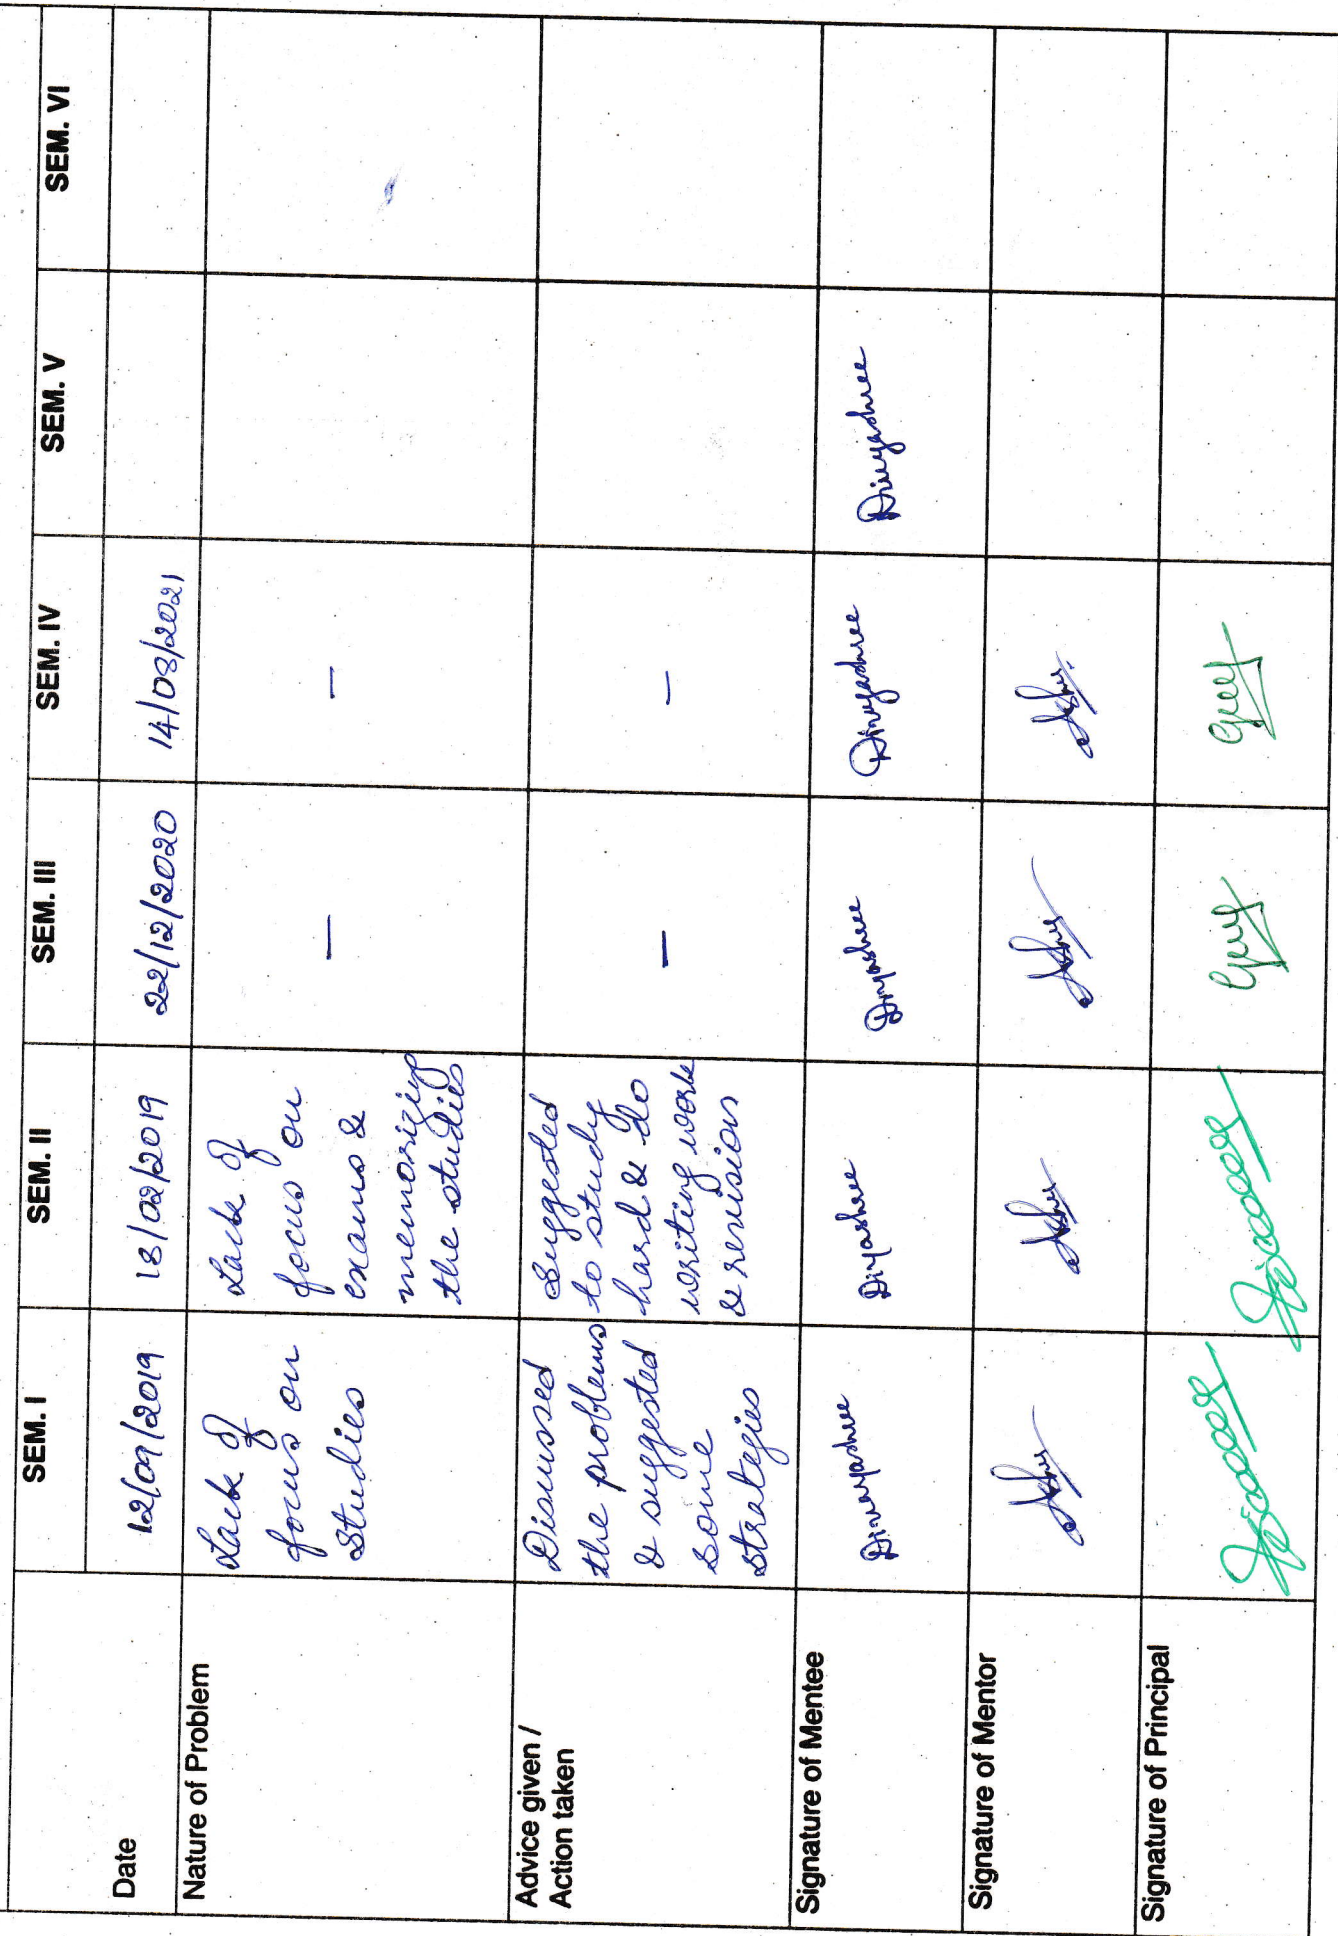 SEM. I SEM. II SEM. III SEM. IV SEM. V SEM. VI
Date 12/09/2019 18/02/2019 22/12/2020 14/08/2021
Nature of Problem
Lack of
focus on
Studies
Lack of
focus on
exams &
memorizing
the studies
—
—
Advice given /
Action taken
Discussed
the problems
& suggested
some
strategies
Suggested
to study
hard & do
writing work
& revision
—
—
Signature of Mentee Divyashree Divyashree Divyashree Divyashree Divyashree
Signature of Mentor
Signature of Principal